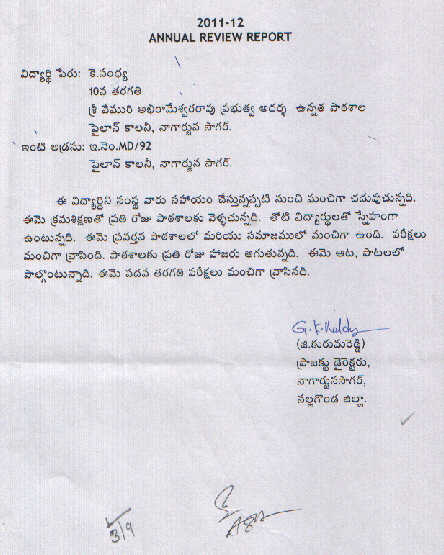 2011-12
ANNUAL REVIEW REPORT
విద్యార్థి పేరు: కె.సంధ్య
10వ తరగతి
శ్రీ వేమురి అఖిరామేశ్వరరావు ప్రభుత్వ ఆదర్శ ఉన్నత పాఠశాల
పైలాన్ కాలనీ, నాగార్జున సాగర్.
ఇంటి అడ్రసు: ఇ.నెం.MD/92
పైలాన్ కాలనీ, నాగార్జున సాగర్.
ఈ విద్యార్థిని సంస్థ వారు సహాయం చేస్తున్నప్పటి నుంచి మంచిగా చదువుచున్నది.
ఈమె క్రమశిక్షణతో ప్రతి రోజు పాఠశాలకు వెళ్ళుచున్నది. తోటి విద్యార్థులతో స్నేహంగా
ఉంటున్నది. ఈమె ప్రవర్తన పాఠశాలలో మరియు సమాజములో మంచిగా ఉంది. పరీక్షలు
మంచిగా వ్రాసింది. పాఠశాలకు ప్రతి రోజు హాజరు అగుతున్నది. ఈమె ఆట, పాటలలో
పాల్గొంటున్నాది. ఈమె పదవ తరగతి పరీక్షలు మంచిగా వ్రాసినది.
G.K.Reddy
(జి.గురుమరెడ్డి)
ప్రాజెక్టు డైరెక్టరు,
నాగార్జునసాగర్,
నల్లగొండ జిల్లా.
3/9